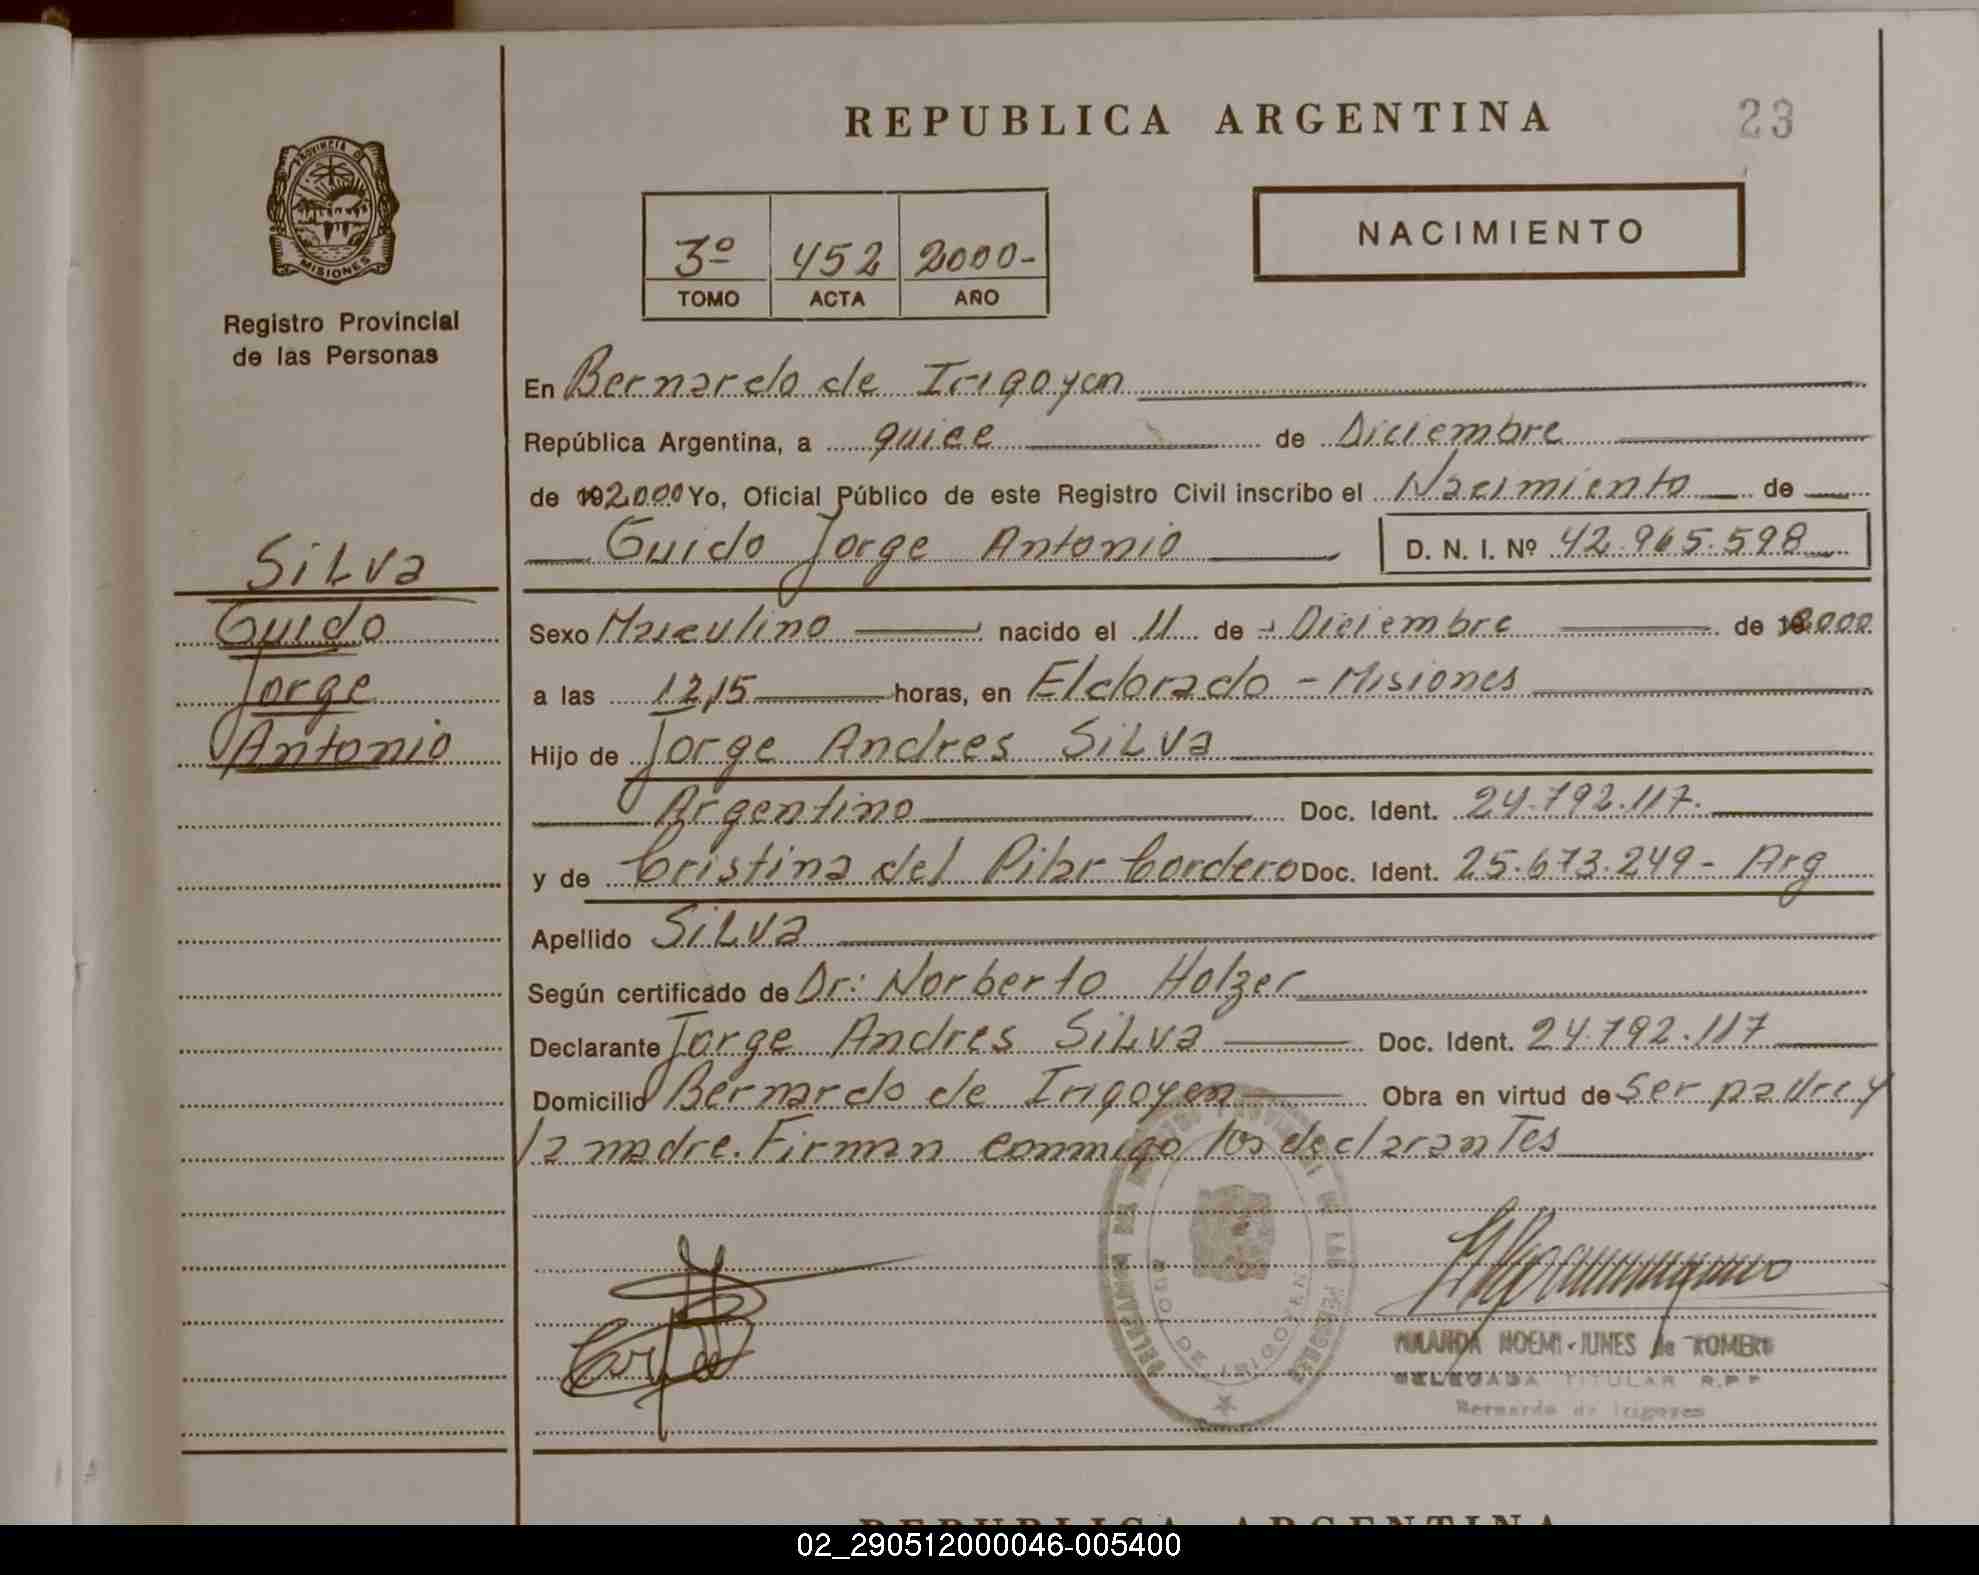 REPUBLICA ARGENTINA
23
PROVINCIA DE
MISIONES
Registro Provincial
de las Personas
3º 452 2000-
TOMO ACTA AÑO
NACIMIENTO
En Bernardo de Irigoyen
República Argentina, a quice de Diciembre
de 192.000 Yo, Oficial Público de este Registro Civil inscribo el Nacimiento de
Guido Jorge Antonio D. N. I. Nº 42.965.598
Silva
Guido
Jorge
Antonio
Sexo Masculino nacido el 11 de Diciembre de 2000
a las 12,15 horas, en Eldorado - Misiones
Hijo de Jorge Andres Silva
Argentino Doc. Ident. 24.792.117.
y de Cristina del Pilar Cordero Doc. Ident. 25.673.249- Arg
Apellido Silva
Según certificado de Dr: Norberto Holzer
Declarante Jorge Andres Silva Doc. Ident. 24.792.117
Domicilio Bernardo de Irigoyen Obra en virtud de Ser padre y
la madre. Firman conmigo los declarantes
NOEMI JUNES de ROMERO
DELEGADA TITULAR R.P.P
Bernardo de Irigoyen
REPUBLICA ARGENTINA
02_290512000046-005400